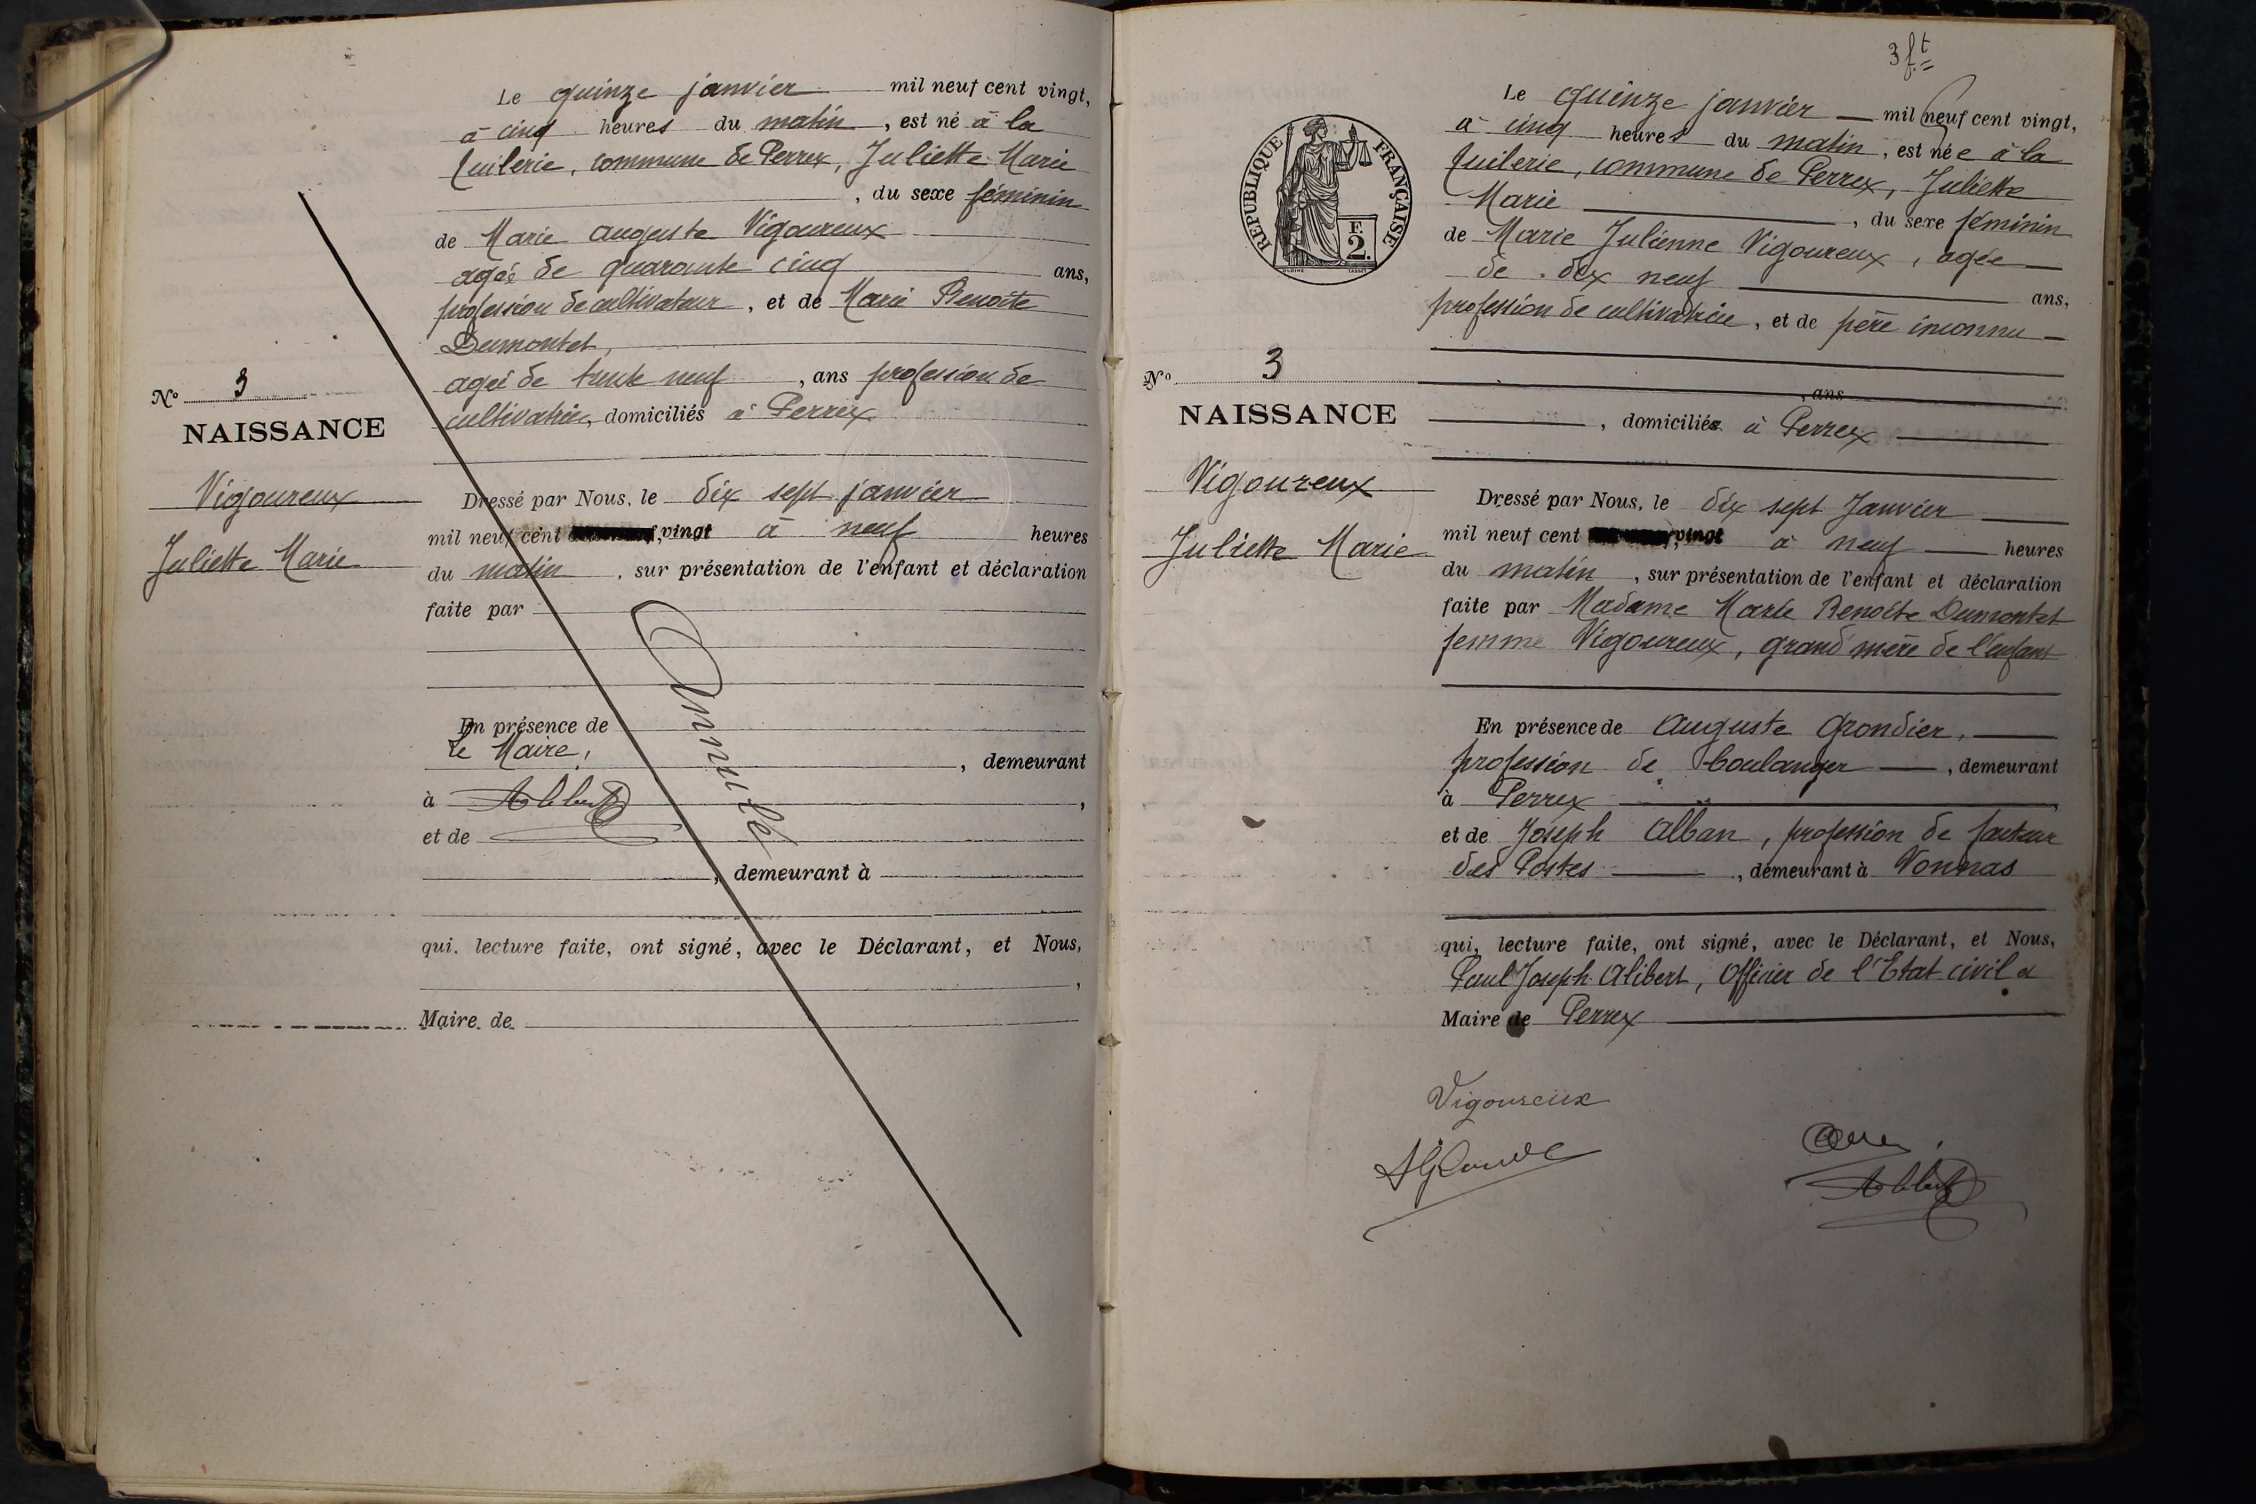 Le quinze janvier mil neuf cent vingt,
à cinq heures du matin, est né à la
tuilerie, commune de Perrex, Juliette Marie
, du sexe féminin
de Marie Auguste Vigoureux
agée de quarante cinq ans,
profession de cultivateur, et de Marie Benoîte
Dumontet,
agée de trente neuf, ans profession de
cultivatrice, domiciliés à Perrex
No 3
NAISSANCE
Vigoureux
Juliette Marie
Dressé par Nous, le dix sept janvier
mil neuf cent vingt à neuf heures
du matin, sur présentation de l'enfant et déclaration
faite par
Annulé
En présence de
Le Maire,
, demeurant
à Alibert,
et de
, demeurant à
qui, lecture faite, ont signé, avec le Déclarant, et Nous,
,
Maire de
3 ft
Le quinze janvier mil neuf cent vingt,
à cinq heures du matin, est née à la
tuilerie, commune de Perrex, Juliette
Marie, du sexe féminin
de Marie Julienne Vigoureux, agée
de dix neuf ans,
profession de cultivatrice, et de père inconnu
, ans
, domiciliée à Perrex
RÉPUBLIQUE FRANÇAISE
F.
2.
No 3
NAISSANCE
Vigoureux
Juliette Marie
Dressé par Nous, le dix sept Janvier
mil neuf cent vingt à neuf heures
du matin, sur présentation de l'enfant et déclaration
faite par Madame Marie Benoîte Dumontet
femme Vigoureux, grand mère de l'enfant
En présence de Auguste Grondier,
profession de boulanger, demeurant
à Perrex
et de Joseph Alban, profession de facteur
des Postes, demeurant à Vonnas
qui, lecture faite, ont signé, avec le Déclarant, et Nous,
Paul Joseph Alibert, Officier de l'Etat civil et
Maire de Perrex
Vigoureux
Alibert